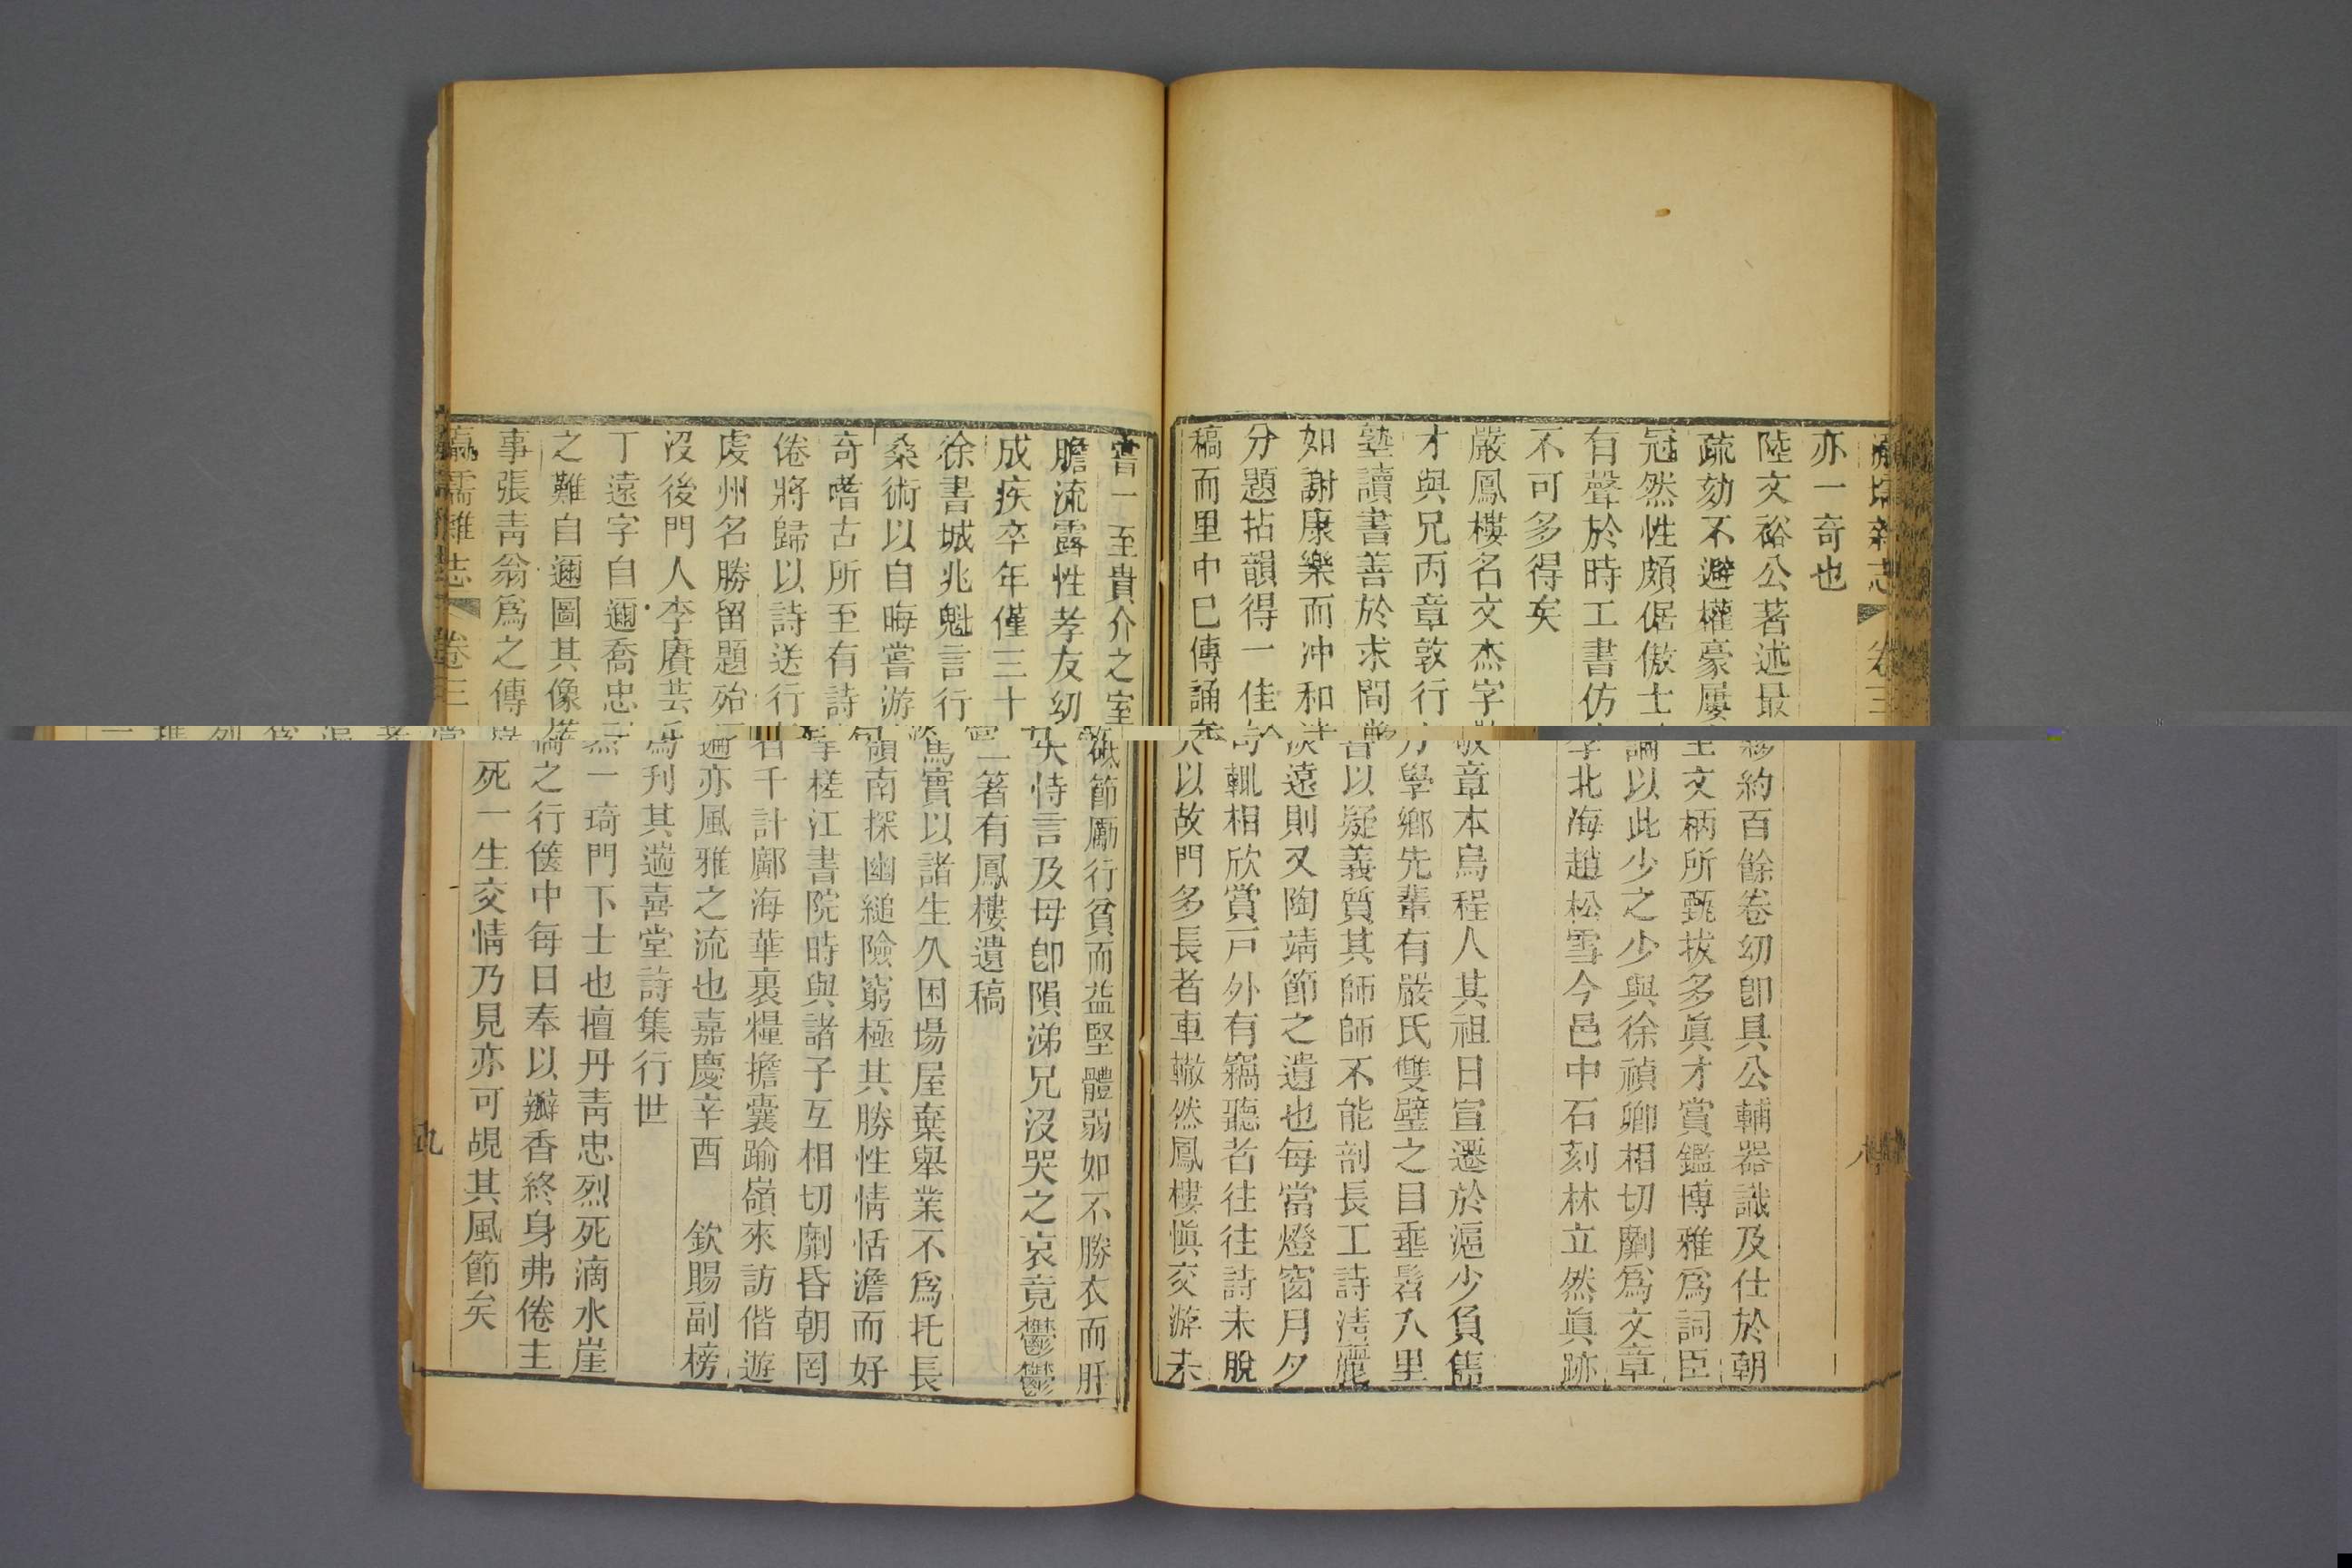 亦一奇也
陸文裕公著述最夥約百餘卷幼卽具公輔器識及仕於朝
疏劾不避權豪屢主文柄所甄拔多眞才賞鑑博雅爲詞臣
冠然性頗倨傲士論以此少之少與徐禎卿相切劘爲文章
有聲於時工書仿李北海趙松雪今邑中石刻林立然眞跡
不可多得矣
嚴鳳樓名文杰字敬章本烏程人其祖日宣遷於滬少負雋
才與兄丙章敦行力學鄉先輩有嚴氏雙璧之目垂髫入里
塾讀書善於求間嘗以疑義質其師師不能剖長工詩淸麗
如謝康樂而冲和淡遠則又陶靖節之遺也每當燈窗月夕
分題拈韻得一佳句輒相欣賞戸外有竊聽者往往詩未脫
稿而里中已傳誦矣以故門多長者車轍然鳳樓愼交游未
嘗一至貴介之室砥節勵行貧而益堅體弱如不勝衣而肝
膽流露性孝友幼失恃言及母卽隕涕兄沒哭之哀竟鬱鬱
成疾卒年僅三十二著有鳳樓遺稿
徐書城兆魁言行篤實以諸生久困場屋棄舉業不爲托長
桑術以自晦嘗游嶺南探幽縋險窮極其勝性情恬澹而好
奇嗜古所至有詩掌槎江書院時與諸子互相切劘昏朝罔
倦將歸以詩送行者千計鄺海華裹糧擔囊踰嶺來訪偕遊
虔州名勝留題殆遍亦風雅之流也嘉慶辛酉 欽賜副榜
沒後門人李賡芸爲刊其遄喜堂詩集行世
丁遠字自邇喬忠烈一琦門下士也擅丹靑忠烈死滴水崖
之難自邇圖其像 之行篋中每日奉以瓣香終身弗倦主
事張靑翁爲之傳 死一生交情乃見亦可覘其風節矣
瀛壖雜志 卷三 九